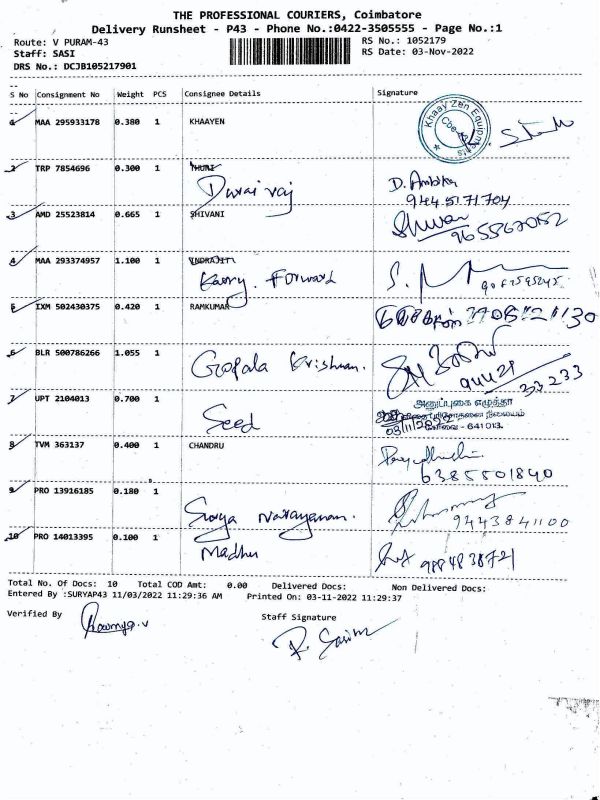 THE PROFESSIONAL COURIERS, Coimbatore
Delivery Runsheet - P43 - Phone No.:0422-3505555 - Page No.:1
Route: V PURAM-43 RS No.: 1052179
Staff: SASI RS Date: 03-Nov-2022
DRS No.: DCJB105217901
S No Consignment No Weight PCS Consignee Details Signature
1 MAA 295933178 0.380 1 KHAAYEN Khaay Zen Equipments
2 TRP 7854696 0.300 1
Durai raj D. Ambika
9445171704
3 AMD 25523814 0.665 1 SHIVANI
4 MAA 293374957 1.100 1 INDRAJIT
Karry. Forward
5 IXM 502430375 0.420 1 RAMKUMAR
6 BLR 500786266 1.055 1
Gopala Krishnan.
94421
33233
7 UPT 2104013 0.700 1 அனுப்புகை எழுத்தர்
Seed நிலையம்
கோவை - 641 013.
8 TVM 363137 0.400 1 CHANDRU
6385501840
9 PRO 13916185 0.180 1
Surya Narayanan. 9443841100
10 PRO 14013395 0.100 1 Madhu
Total No. Of Docs: 10 Total COD Amt: 0.00 Delivered Docs: Non Delivered Docs:
Entered By :SURYAP43 11/03/2022 11:29:36 AM Printed On: 03-11-2022 11:29:37
Verified By Staff Signature
Sowmya.v R. Sasim